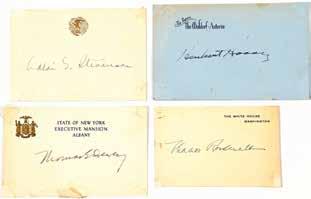 Adlai E. Stevenson
The Waldorf-Astoria
Herbert Hoover
STATE OF NEW YORK
EXECUTIVE MANSION
ALBANY
Thomas E. Dewey
THE WHITE HOUSE
WASHINGTON